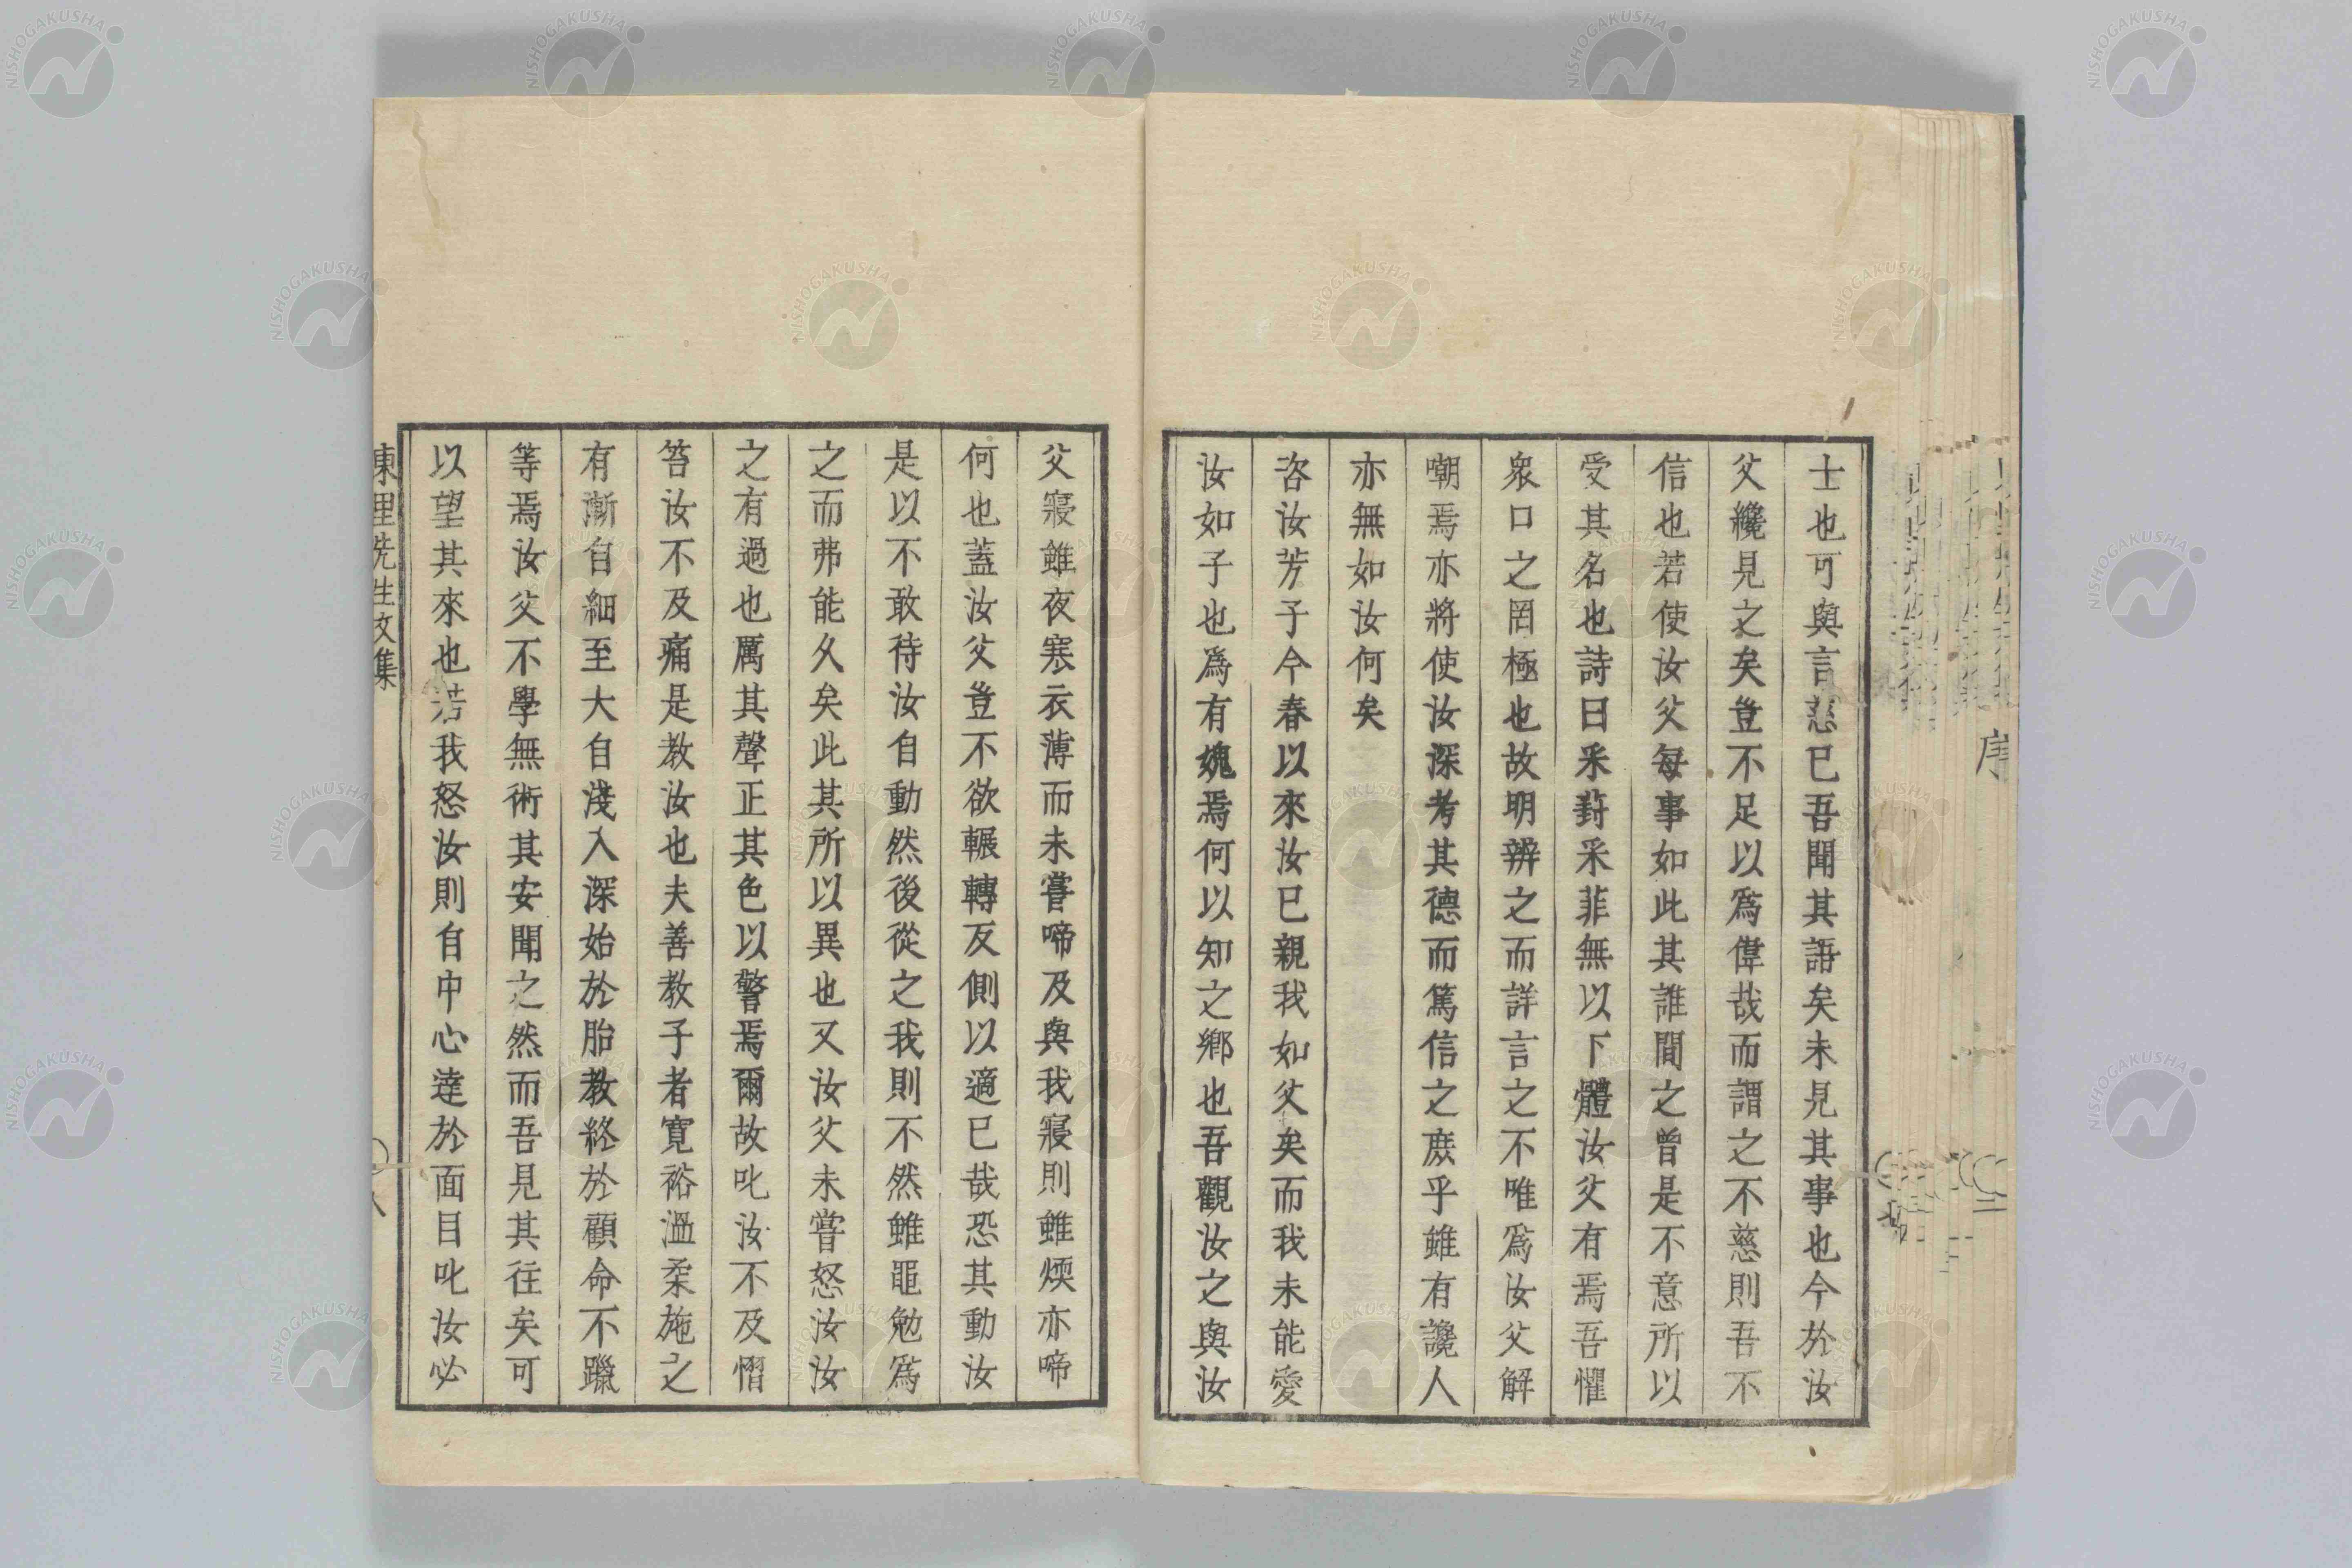 士也可與言慈已吾聞其語矣未見其事也今於汝
父纔見之矣豈不足以爲偉哉而謂之不慈則吾不
信也若使汝父每事如此其誰間之曾是不意所以
受其名也詩曰采葑采菲無以下體汝父有焉吾懼
衆口之罔極也故明辨之而詳言之不唯爲汝父解
嘲焉亦將使汝深考其德而篤信之庶乎雖有讒人
亦無如汝何矣
咨汝芳子今春以來汝已親我如父矣而我未能愛
汝如子也爲有媿焉何以知之鄉也吾觀汝之與汝
父寢雖夜寒衣薄而未嘗啼及與我寢則雖煗亦啼
何也蓋汝父豈不欲輾轉反側以適已哉恐其動汝
是以不敢待汝自動然後從之我則不然雖黽勉爲
之而弗能久矣此其所以異也又汝父未嘗怒汝汝
之有過也厲其聲正其色以警焉爾故叱汝不及慴
笞汝不及痛是教汝也夫善教子者寬裕溫柔施之
有漸自細至大自淺入深始於胎教終於顧命不躐
等焉汝父不學無術其安聞之然而吾見其往矣可
以望其來也若我怒汝則自中心達於面目叱汝必
東里先生文集
八
序
NISHOGAKUSHA